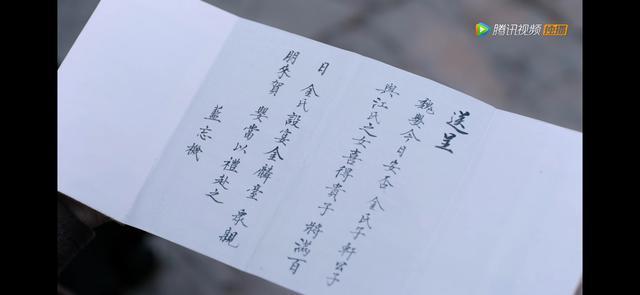 腾讯视频 独播
送呈
魏嬰今日安否 金氏子軒公子
與江氏之女喜得貴子將滿百
日 金氏設宴金麟臺 眾親
朋來賀 嬰當以禮赴之
藍忘機